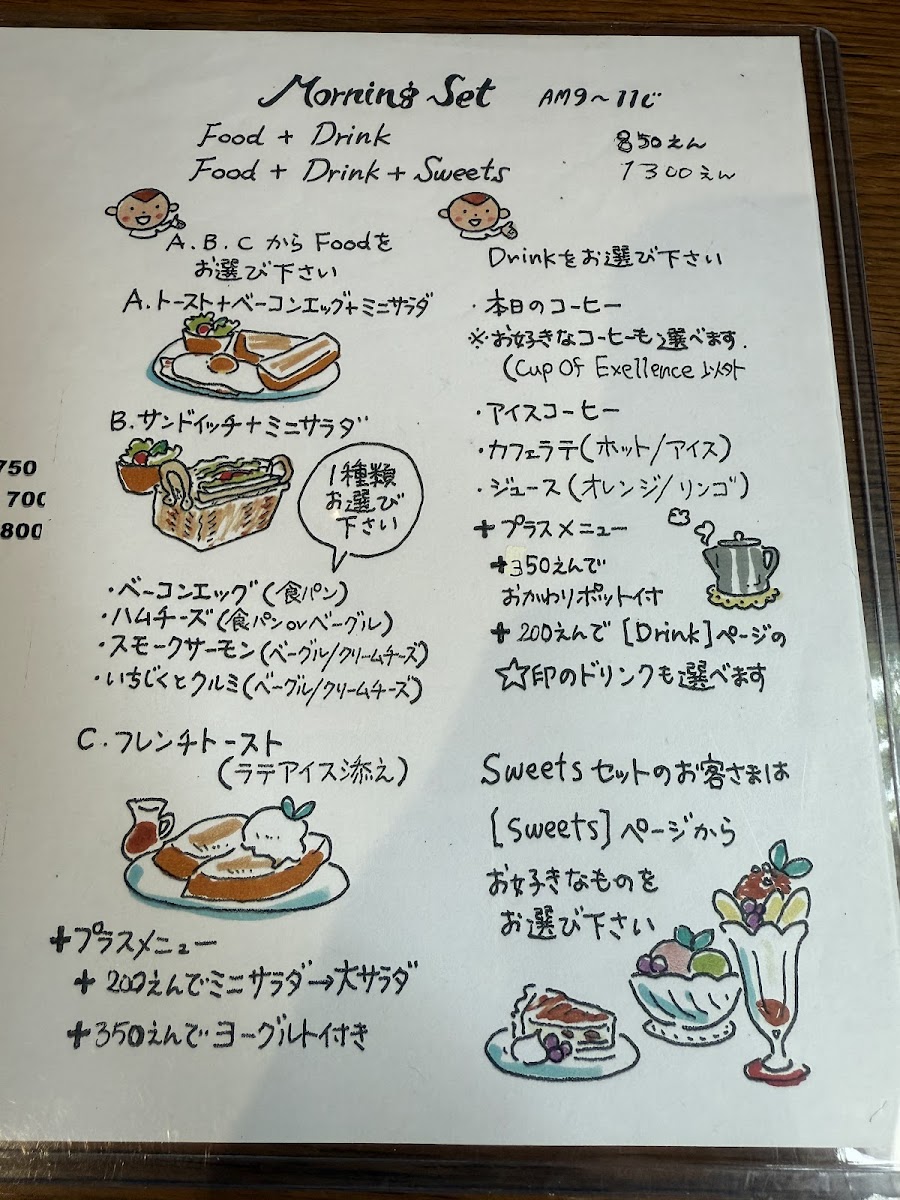 Morning Set AM9～11じ
Food + Drink 850えん
Food + Drink + Sweets 1300えん
A.B.CからFoodを
お選び下さい
A.トースト+ベーコンエッグ+ミニサラダ
B.サンドイッチ+ミニサラダ
1種類
お選び
下さい
・ベーコンエッグ(食パン)
・ハムチーズ(食パンorベーグル)
・スモークサーモン(ベーグル/クリームチーズ)
・いちじくとクルミ(ベーグル/クリームチーズ)
C.フレンチトースト
(ラテアイス添え)
+プラスメニュー
+200えんでミニサラダ→大サラダ
+350えんでヨーグルト付き
Drinkをお選び下さい
・本日のコーヒー
※お好きなコーヒーも選べます.
(Cup Of Exellence以外
・アイスコーヒー
・カフェラテ(ホット/アイス)
・ジュース(オレンジ/リンゴ)
+プラスメニュー
+350えんで
おかわりポット付
+200えんで[Drink]ページの
☆印のドリンクも選べます
Sweetsセットのお客さまは
[Sweets]ページから
お好きなものを
お選び下さい
750
700
800